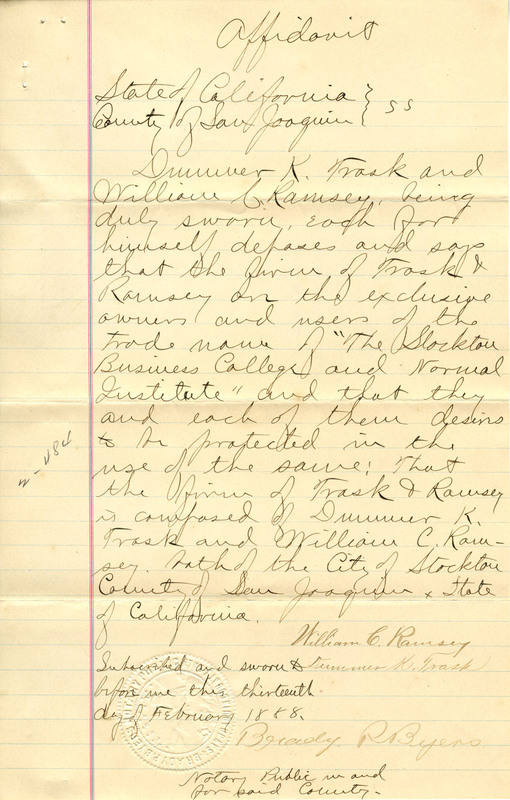 Affidavit
State of California } ss
County of San Joaquin
Dummer K. Trask and
William C. Ramsey, being
duly sworn, each for
himself deposes and says
that the firm of Trask &
Ramsey are the exclusive
owners and users of the
trade name of "The Stockton
Business College and Normal
Institute" and that they
and each of them desires
to be protected in the
use of the same; That
the firm of Trask & Ramsey
is composed of Dummer K.
Trask and William C. Ram-
sey. both of the City of Stockton
County of San Joaquin & State
of California.
William C. Ramsey
Dummer K. Trask
Subscribed and sworn to
before me this thirteenth
day of February 1888.
Brady P. Byers
Notary Public in and
for said County-